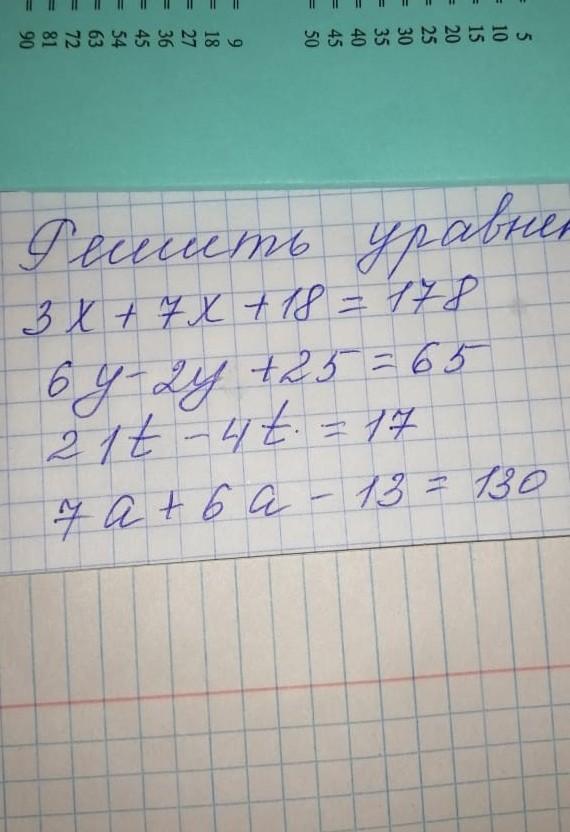 = 5
= 10
= 15
= 20
= 25
= 30
= 35
= 40
= 45
= 50
= 9
= 18
= 27
= 36
= 45
= 54
= 63
= 72
= 81
= 90
Решить уравнен
3x + 7x + 18 = 178
6y - 2y + 25 = 65
21t - 4t = 17
7a + 6a - 13 = 130